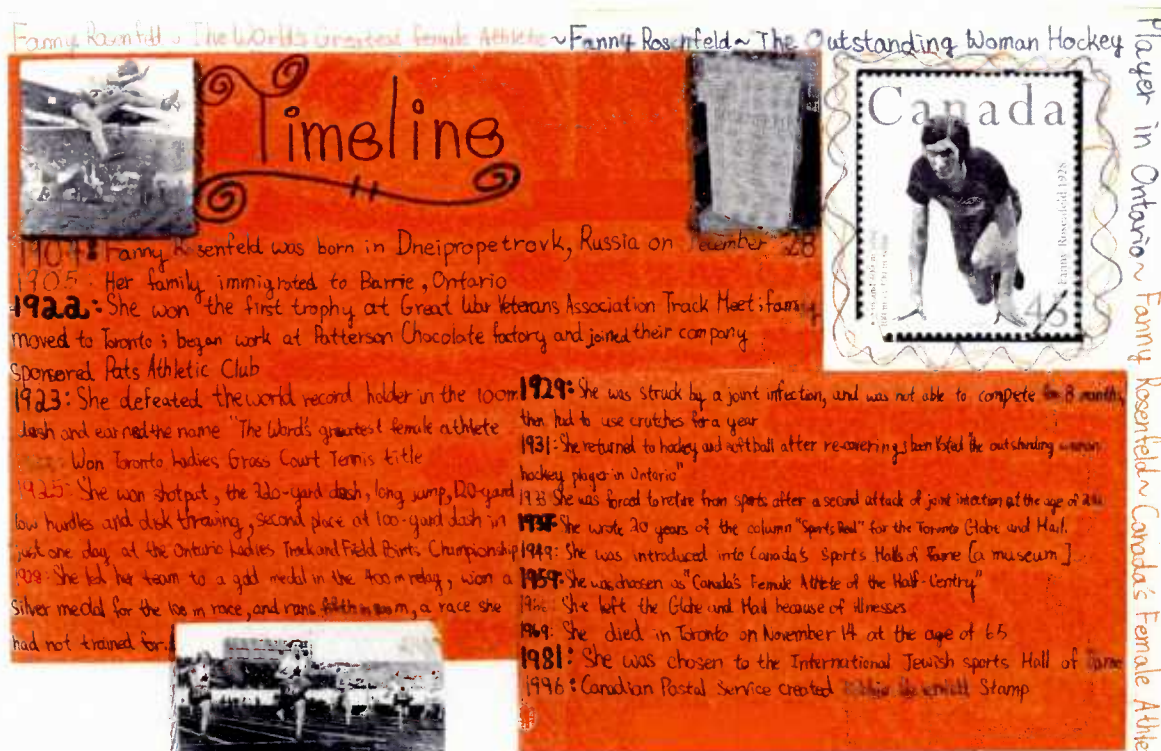 Fanny Rosenfeld ~ The World's Greatest Female Athlete ~ Fanny Rosenfeld ~ The Outstanding Woman Hockey
Player in Ontario ~ Fanny Rosenfeld ~ Canada's Female Athle
Timeline
Canada
Fanny Rosenfeld 1928
45
Fanny Rosenfeld was born in Dneipropetrovk, Russia on December 28
1905: Her family immigrated to Barrie, Ontario
1922: She won the first trophy at Great War Veterans Association Track Meet; family
moved to Toronto; began work at Patterson Chocolate factory and joined their company
Sponsored Pats Athletic Club
1923: She defeated the world record holder in the 100m
dash and earned the name "The Word's greatest female athlete
Won Toronto Ladies Grass Court Tennis title
1925: She won shotput, the 220-yard dash, long jump, 120-yard
low hurdles and disk throwing, second place at 100-yard dash in
just one day, at the Ontario Ladies Track and Field Points Championship
1928: She led her team to a gold medal in the 400m relay, won a
silver medal for the 100 m race, and rans fifth in m, a race she
had not trained for.
1929: She was struck by a joint infection, and was not able to compete for 8 months,
then had to use crutches for a year
1931: She returned to hockey and softball after re-covering; been listed "the outstanding woman
hockey player in Ontario"
1933: She was forced to retire from sports after a second attack of joint infection at the age of
She wrote 20 years of the column "Sports Reel" for the Toronto Globe and Mail.
1949: She was introduced into Canada's Sports Halls of Fame [a museum]
1959: She was choosen as "Canada's Female Athlete of the Half-Centry"
She left the Globe and Mail because of illnesses
1969: She died in Toronto on November 14 at the age of 65
1981: She was chosen to the International Jewish sports Hall of Fame
1996: Canadian Postal Service created Stamp